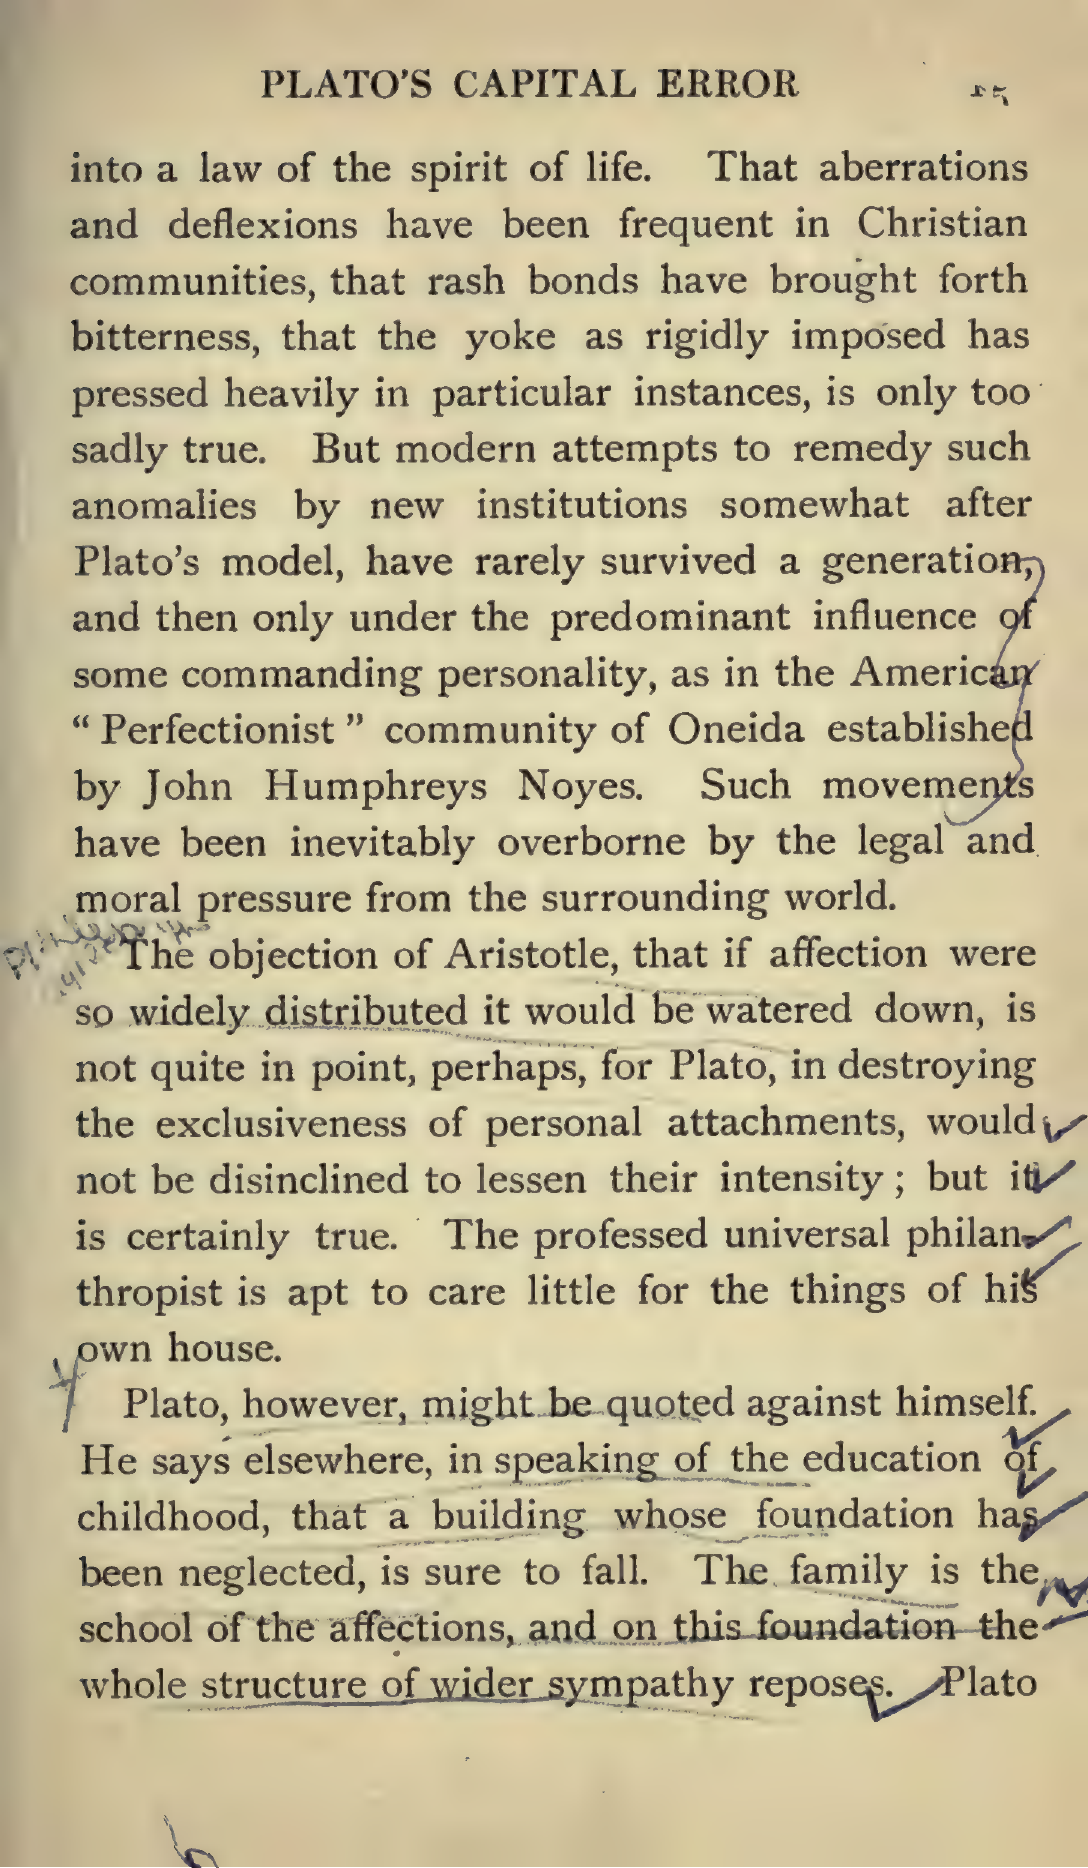 PLATO'S CAPITAL ERROR
into a law of the spirit of life. That aberrations
and deflexions have been frequent in Christian
communities, that rash bonds have brought forth
bitterness, that the yoke as rigidly imposed has
pressed heavily in particular instances, is only too
sadly true. But modern attempts to remedy such
anomalies by new institutions somewhat after
Plato's model, have rarely survived a generation,
and then only under the predominant influence of
some commanding personality, as in the American
“ Perfectionist ” community of Oneida established
by John Humphreys Noyes. Such movements
have been inevitably overborne by the legal and
moral pressure from the surrounding world.
The objection of Aristotle, that if affection were
so widely distributed it would be watered down, is
not quite in point, perhaps, for Plato, in destroying
the exclusiveness of personal attachments, would
not be disinclined to lessen their intensity ; but it
is certainly true. The professed universal philan-
thropist is apt to care little for the things of his
own house.
Plato, however, might be quoted against himself.
He says elsewhere, in speaking of the education of
childhood, that a building whose foundation has
been neglected, is sure to fall. The family is the
school of the affections, and on this foundation the
whole structure of wider sympathy reposes. Plato